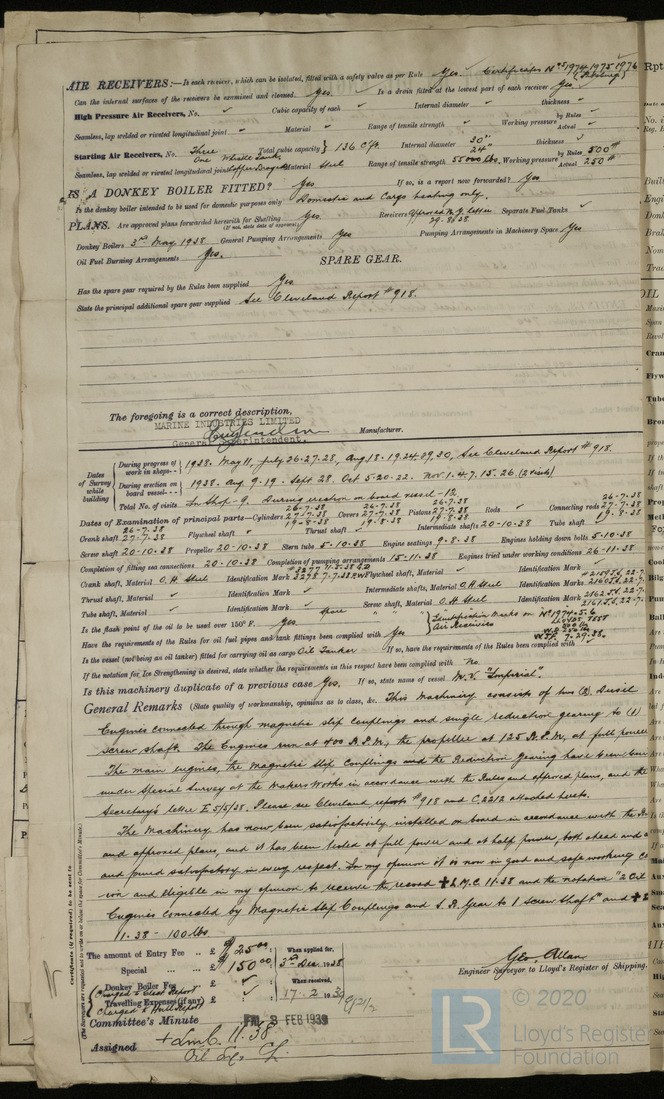 AIR RECEIVERS:—Is each receiver, which can be isolated, fitted with a safety valve as per Rule Yes. Certificates Nos 1974 1975 1976
Can the internal surfaces of the receivers be examined and cleaned Yes Is a drain fitted at the lowest part of each receiver Yes
High Pressure Air Receivers, No. ✓ Cubic capacity of each ✓ Internal diameter ✓ thickness ✓
Seamless, lap welded or riveted longitudinal joint ✓ Material ✓ Range of tensile strength ✓ Working pressure by Rules ✓ Actual ✓
Starting Air Receivers, No. Three Total cubic capacity 136 C/ft Internal diameter 30" 24" thickness ✓
One Whistle Tank
Seamless, lap welded or riveted longitudinal joint Copper Brazed Material Steel Range of tensile strength 55000 lbs. Working pressure by Rules 500# Actual 250#
IS A DONKEY BOILER FITTED? Yes If so, is a report now forwarded? Yes
Is the donkey boiler intended to be used for domestic purposes only Domestic and Cargo heating only.
PLANS. Are approved plans forwarded herewith for Shafting Yes Receivers Approved N.Y. letter Separate Fuel Tanks ✓
(If not, state date of approval) 29.8.38
Donkey Boilers 3rd May. 1938 General Pumping Arrangements Yes Pumping Arrangements in Machinery Space Yes
Oil Fuel Burning Arrangements Yes.
SPARE GEAR.
Has the spare gear required by the Rules been supplied Yes
State the principal additional spare gear supplied See Cleveland Report #918.
The foregoing is a correct description,
MARINE INDUSTRIES LIMITED
General Superintendent. Manufacturer.
Dates of Survey while building
During progress of work in shops-- 1938. May 11, July 26.27.28, Aug. 18.19.24.29.30, See Cleveland Report #918.
During erection on board vessel--- 1938. Aug. 9.19. Sept 28. Oct 5.20.22. Nov 1.4.7.15.26. (2 visits)
Total No. of visits In Shop - 9. During erection on board vessel - 12
Dates of Examination of principal parts—Cylinders 26-7.38 27-7-38 19-8-38 Covers 26-7.38 27-7.38 19.8.38 Pistons 26.7.38 27.7.38 19.8.38 Rods ✓ Connecting rods 26-7-38 27-7.38 19.8.38
Crank shaft 27-7-38 Flywheel shaft ✓ Thrust shaft ✓ Intermediate shafts 20-10-38 Tube shaft ✓
Screw shaft 20-10-38 Propeller 20-10-38 Stern tube 5-10-38 Engine seatings 9-8-38 Engines holding down bolts 5-10-38
Completion of fitting sea connections 20-10-38 Completion of pumping arrangements 15-11-38 Engines tried under working conditions 26-11-38
Crank shaft, Material O.H. Steel Identification Mark Flywheel shaft, Material ✓ Identification Mark ✓
Thrust shaft, Material ✓ Identification Mark ✓ Intermediate shafts, Material O.H. Steel Identification Marks
Tube shaft, Material ✓ Identification Mark ✓ Screw shaft, Material O.H. Steel Identification Mark
Is the flash point of the oil to be used over 150° F. Yes
Identification Marks on Air Receivers No 1974.5.6 LLOYDS TEST
Have the requirements of the Rules for oil fuel pipes and tank fittings been complied with Yes
Is the vessel (not being an oil tanker) fitted for carrying oil as cargo Oil Tanker If so, have the requirements of the Rules been complied with ✓
If the notation for Ice Strengthening is desired, state whether the requirements in this respect have been complied with No
Is this machinery duplicate of a previous case Yes. If so, state name of vessel M.V. "Imperial".
General Remarks (State quality of workmanship, opinions as to class, &c. This Machinery consists of two (2) Diesel
Engines connected through magnetic slip Couplings and single reduction gearing to (1)
screw shaft. The Engines run at 400 R.P.M., the propeller at 125 R.P.M., at full power
The main engines, the Magnetic Slip Couplings and the Reduction Gearing have been built
under Special Survey at the Makers Works in accordance with the Rules and approved plans, and the
Secretary's letter E 5/5/38. Please see Cleveland reports #918 and C.2212 attached hereto.
The Machinery has now been satisfactorily installed on board in accordance with the
and approved plans, and it has been tested at full power and at half power, both ahead and
and found satisfactory in every respect. In my opinion it is now in good and safe working
ion and eligible in my opinion to receive the record ✠ L.M.C. 11.38 and the notation "2 Oil
Engines connected by Magnetic Slip Couplings and S.R. Gear to 1 Screw Shaft" and ✠
11.38 - 100 lbs
Certificate (if required) to be sent to
(The Surveyors are requested not to write on or below the space for Committee's Minute.)
The amount of Entry Fee .. £ $25.00 When applied for,
Special ... ... £ $150.00 3rd Dec. 1938
Donkey Boiler Fee £ ✓ When received,
(Charged to Cleve Report
Travelling Expenses (if any) £ ✓ 17.2.1939
Charged to Hull Report
Geo. Allan
Engineer Surveyor to Lloyd's Register of Shipping.
Committee's Minute FRI. 3 FEB 1939
Assigned + Lmb. 11.38
Oil Eng.
LR © 2020
Lloyd's Register
Foundation